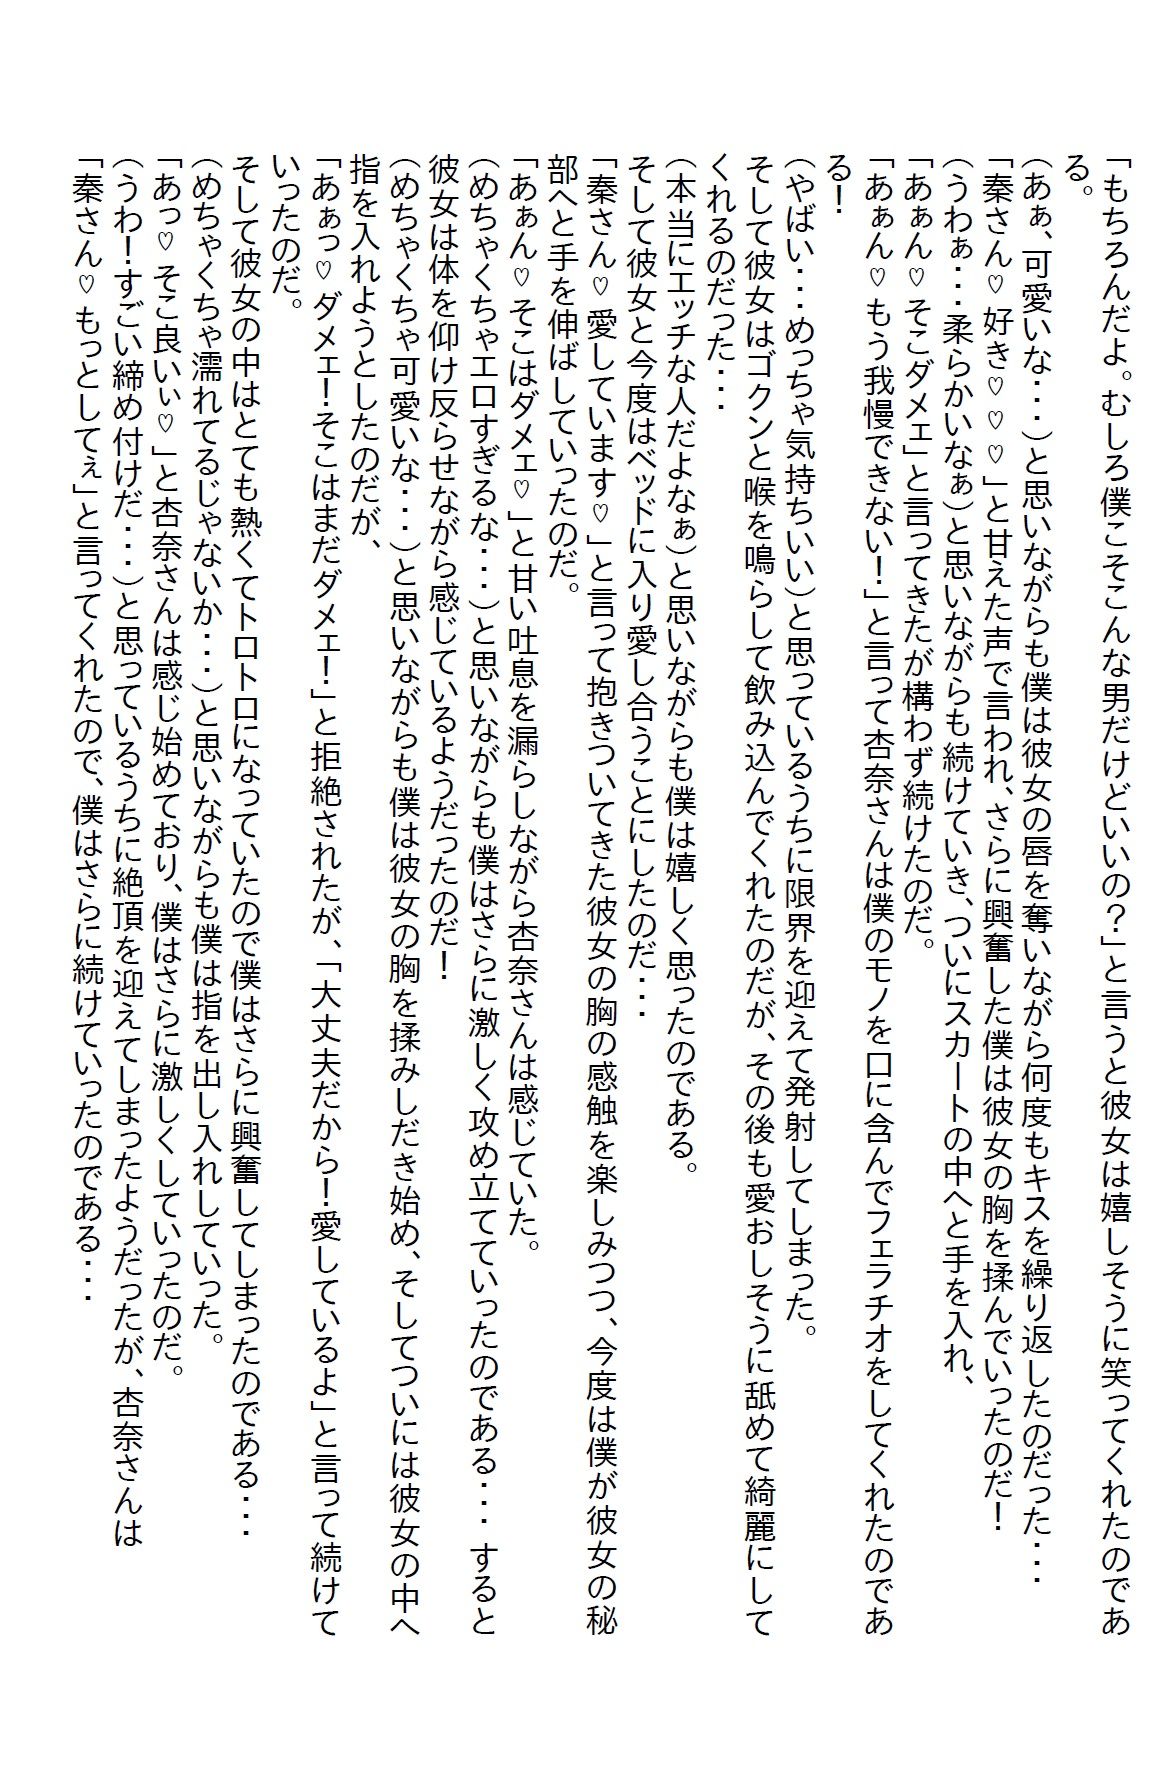 「もちろんだよ。むしろ僕こそこんな男だけどいいの？」と言うと彼女は嬉しそうに笑ってくれたのであ
る。
（あぁ、可愛いな・・・）と思いながらも僕は彼女の唇を奪いながら何度もキスを繰り返したのだった・・・
「秦さん♡好き♡♡♡」と甘えた声で言われ、さらに興奮した僕は彼女の胸を揉んでいったのだ！
（うわぁ・・・柔らかいなぁ）と思いながらも続けていき、ついにスカートの中へと手を入れ、
「あぁん♡そこダメェ」と言ってきたが構わず続けたのだ。
「あぁん♡もう我慢できない！」と言って杏奈さんは僕のモノを口に含んでフェラチオをしてくれたのであ
る！
（やばい・・・めっちゃ気持ちいい）と思っているうちに限界を迎えて発射してしまった。
そして彼女はゴクンと喉を鳴らして飲み込んでくれたのだが、その後も愛おしそうに舐めて綺麗にして
くれるのだった・・・
（本当にエッチな人だよなぁ）と思いながらも僕は嬉しく思ったのである。
そして彼女と今度はベッドに入り愛し合うことにしたのだ・・・
「秦さん♡愛しています♡」と言って抱きついてきた彼女の胸の感触を楽しみつつ、今度は僕が彼女の秘
部へと手を伸ばしていったのだ。
「あぁん♡そこはダメェ♡」と甘い吐息を漏らしながら杏奈さんは感じていた。
（めちゃくちゃエロすぎるな・・・）と思いながらも僕はさらに激しく攻め立てていったのである・・・すると
彼女は体を仰け反らせながら感じているようだったのだ！
（めちゃくちゃ可愛いな・・・）と思いながらも僕は彼女の胸を揉みしだき始め、そしてついには彼女の中へ
指を入れようとしたのだが、
「あぁっ♡ダメェ！そこはまだダメェ！」と拒絶されたが、「大丈夫だから！愛しているよ」と言って続けて
いったのだ。
そして彼女の中はとても熱くてトロトロになっていたので僕はさらに興奮してしまったのである・・・
（めちゃくちゃ濡れてるじゃないか・・・）と思いながらも僕は指を出し入れしていった。
「あっ♡そこ良いぃ♡」と杏奈さんは感じ始めており、僕はさらに激しくしていったのだ。
（うわ！すごい締め付けだ・・・）と思っているうちに絶頂を迎えてしまったようだったが、杏奈さんは
「秦さん♡もっとしてぇ」と言ってくれたので、僕はさらに続けていったのである・・・